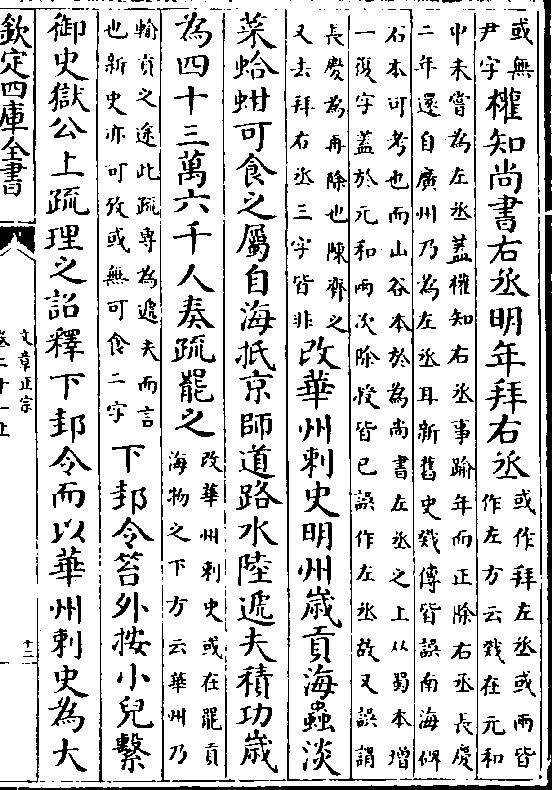 或無
尹字
權知尚書右丞明年拜右丞
或作拜左丞或兩皆
作左方云戣在元和
中未嘗為左丞蓋權知右丞事踰年而正除右丞長慶
二年還自廣州乃為左丞耳新舊史戣傳皆誤南海碑
石本可考也而山谷本於為尚書左丞之上从蜀本增
一復字蓋於元和兩次除授皆已誤作左丞故又誤謂
長慶為再除也陳齊之
又去拜右丞三字皆非
改華州刺史明州歲貢海蟲淡
菜蛤蚶可食之屬自海抵京師道路水陸遞夫積功歲
為四十三萬六千人奏疏罷之
改華州刺史或在罷貢
海物之下方云華州乃
輸貢之途此疏專為遞夫而言
也新史亦可攷或無可食二字
下邽令笞外按小兒繫
御史獄公上疏理之詔釋下邽令而以華州刺史為大
欽定四庫全書
文章正宗
卷二十一上
十二